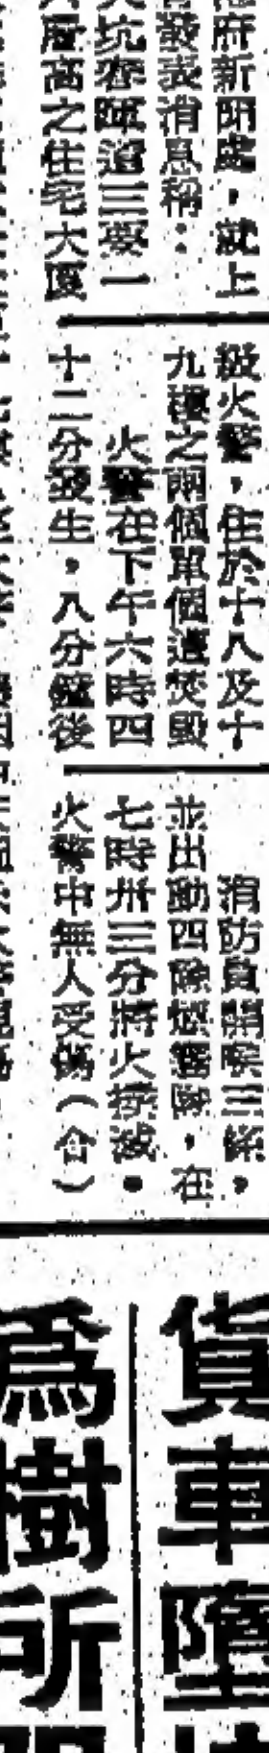 府新聞處，就上
發表消息稱：
坑春暉道三要一
層高之住宅大廈
火警，住於十八及十
九樓之兩個單個遭焚毀
火警在下午六時四
十二分發生，八分鐘後
消防員開喉三條，
並出動四隊煙霧隊，在
七時卅三分將火撲滅。
火警中無人受傷（合）
貨車墮
為樹所